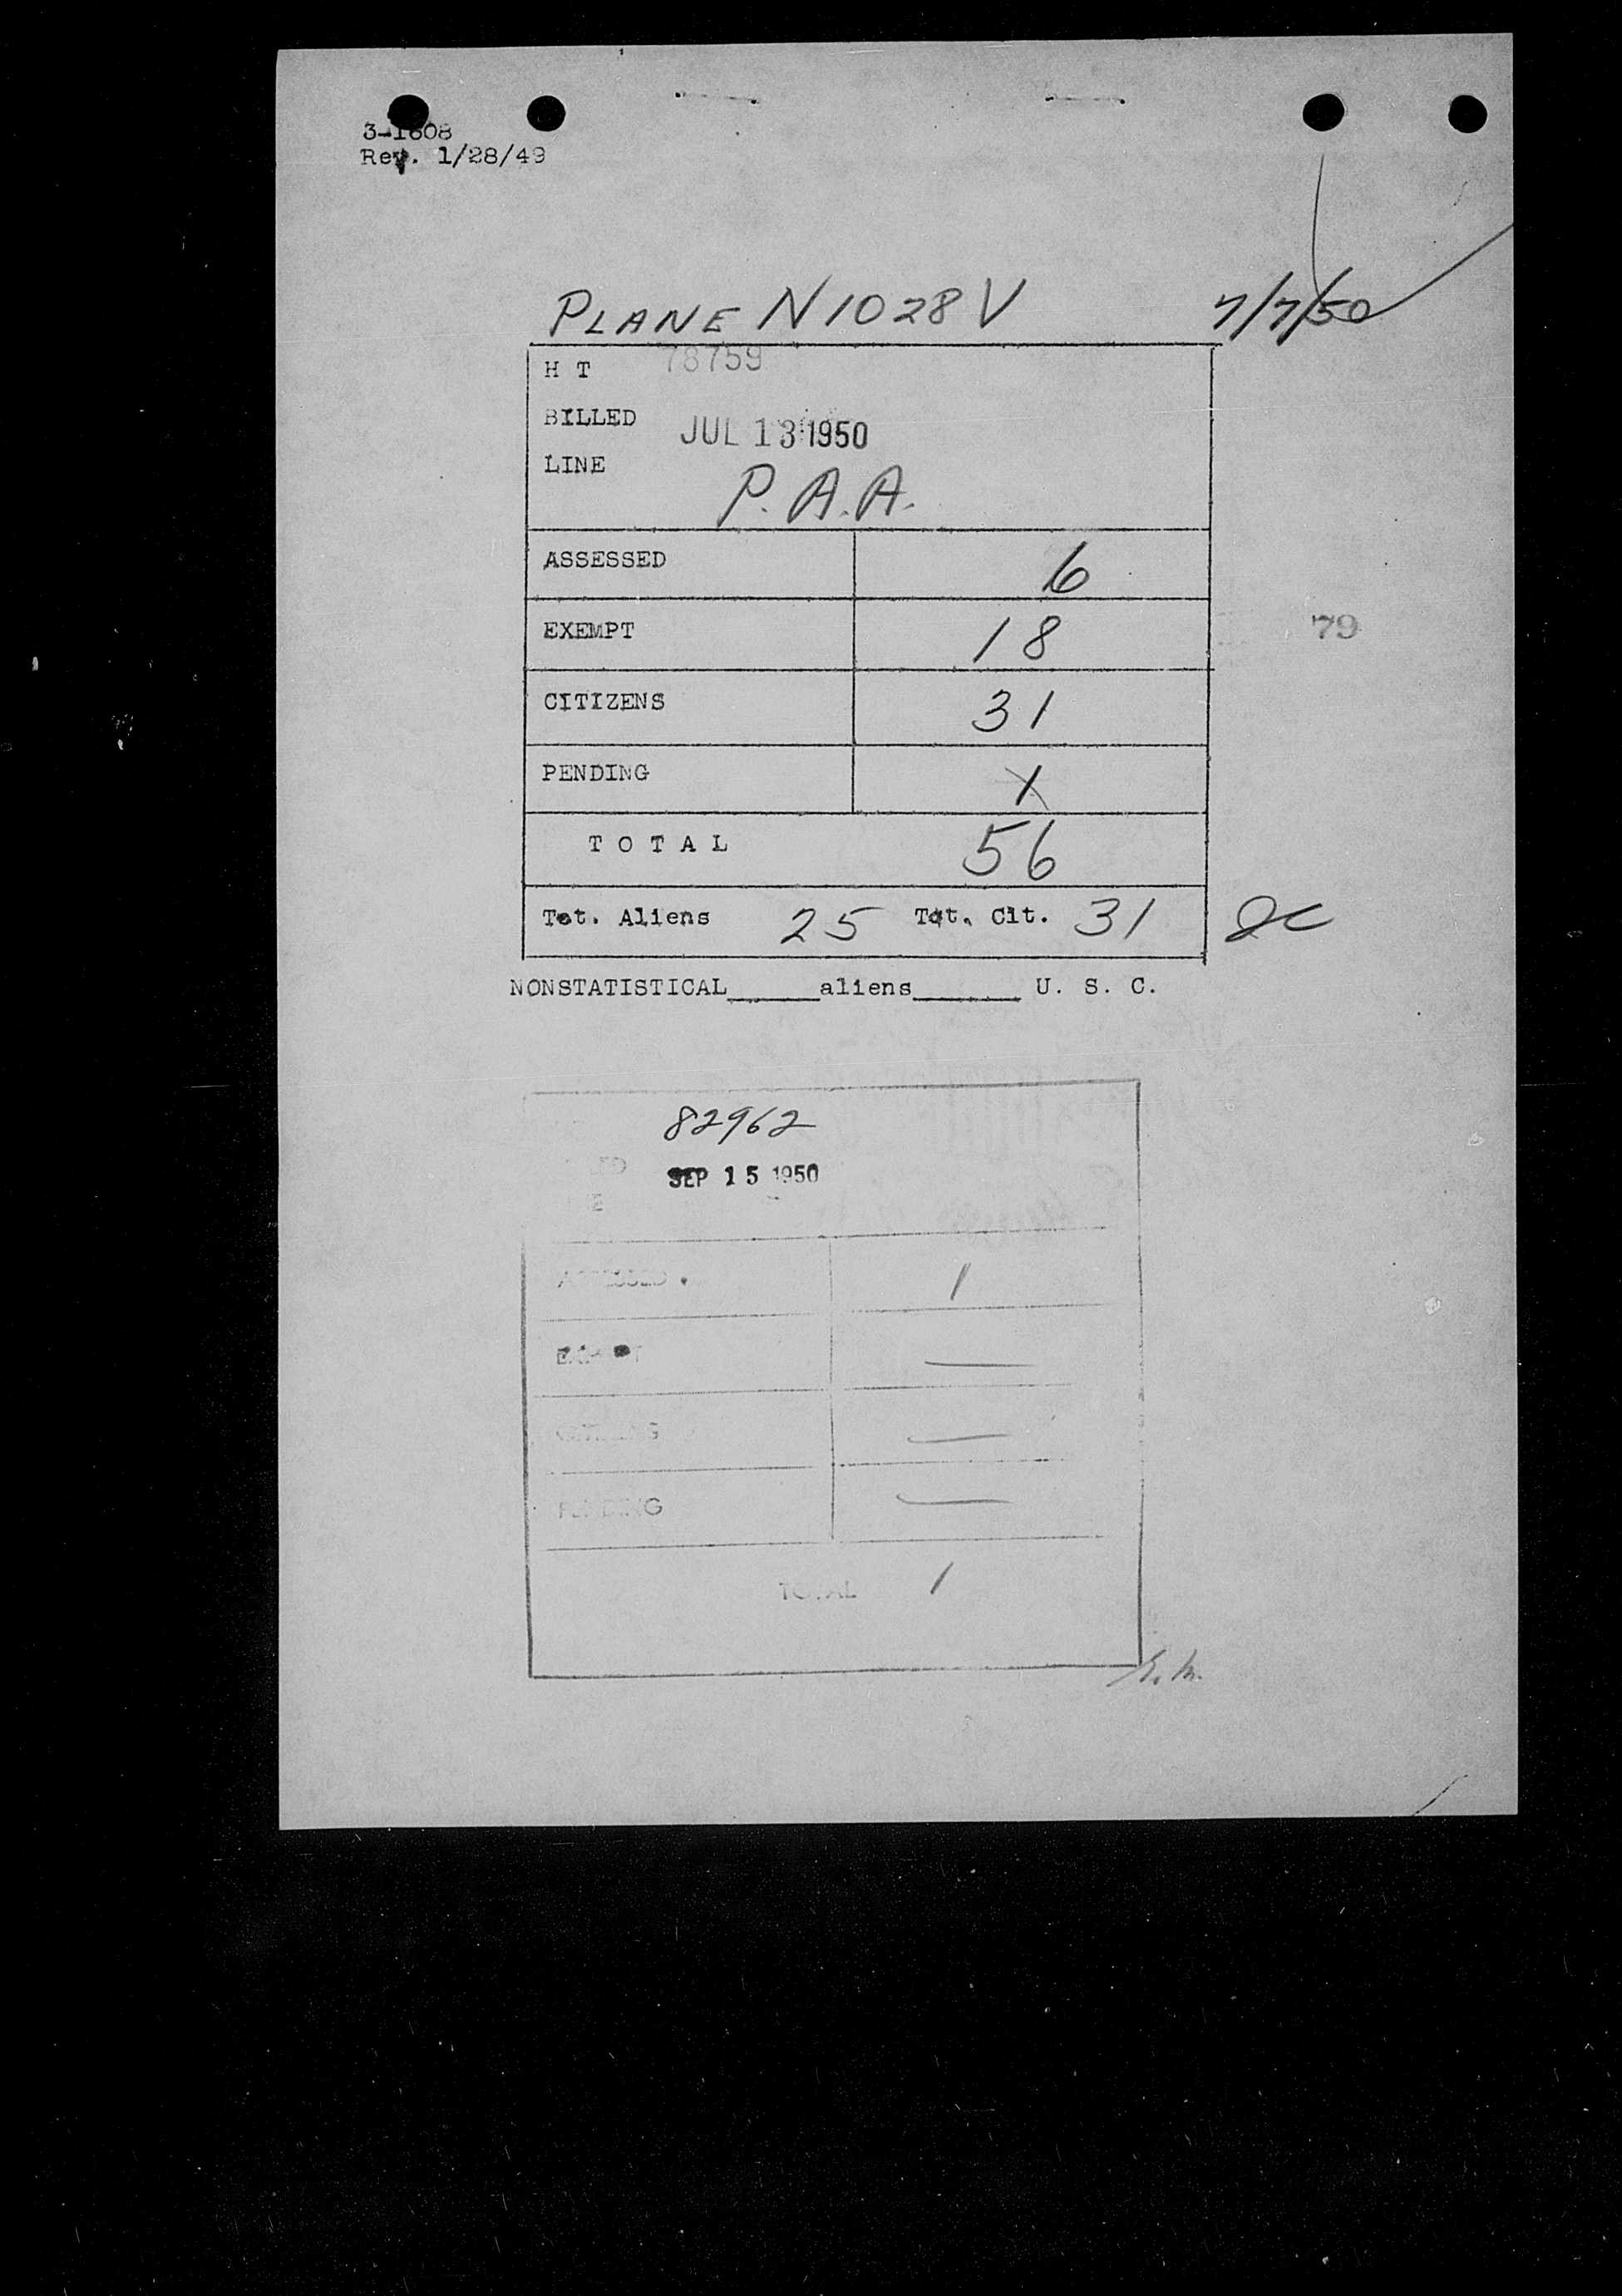 3-1608
Rev. 1/28/49
PLANE N1028V 7/7/50
H T 78759
BILLED JUL 13 1950
LINE
P.A.A.
ASSESSED 6
EXEMPT 18
79
CITIZENS 31
PENDING 1
T O T A L 56
Tot. Aliens 25 Tot. Cit. 31
NONSTATISTICAL______aliens_______ U. S. C.
82962
SEP 15 1950
ASSESSED 1
EXEMPT —
—
PENDING —
TOTAL 1